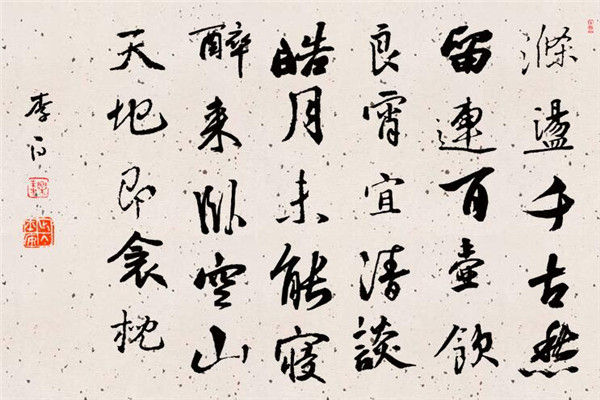 滌盪千古愁
留連百壺飲
良宵宜清談
皓月未能寢
醉来臥空山
天地即衾枕
李白